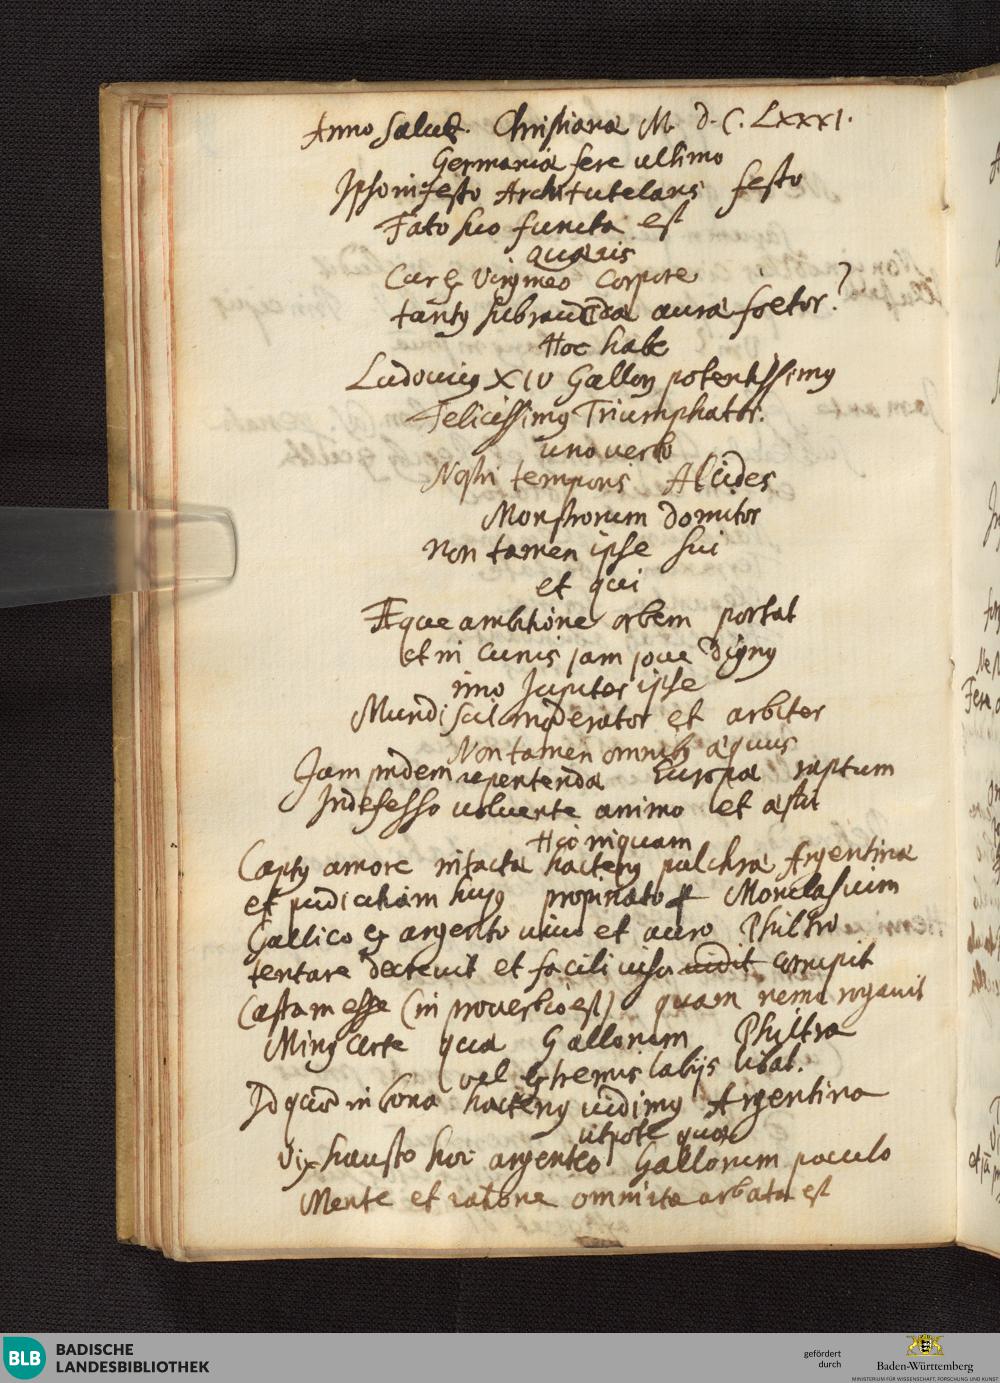 Anno Salut. Christianæ M. d. C. LXXXI.
Germaniæ fere ultimo
Ipso in festo Architutelaris festo
Fato suo functa est
quæris
Cur è Virgineo Corpore
tantus subraucidæ auræ foetor?
Hoc habe
Ludovicus XIV Gallorum potentissimus
Felicissimus Triumphator.
uno verbo
Nostri temporis Alcides
Monstrorum domitor
non tamen ipse sui
et qui
Æque ambitione orbem portat
et in cunis jam jove dignus
imo Jupiter ipse
Mundi scil. moderator et arbiter
Non tamen omnibus æquus
Jam pridem repetendæ Europæ raptum
Indefesso volvente animo et astu
Hic inquam
Captus amore intactæ hactenus pulchræ Argentinæ
et pudicitiam hujus propinato Monclasium
Gallico ex argento vivo et auro Philtro
tentare decrevit et facili visu vidit corrupit
Castam esse (in proverbio est) quam nemo rogavit
Minus certe quæ Gallorum Philtra
vel extremis labijs libat.
Id quod in bona hactenus vidimus Argentina
utpote quæ
Vix hausto hoc argenteo Gallorum poculo
Mente et ratione omni ita orbata est
BLB
BADISCHE
LANDESBIBLIOTHEK
gefördert
durch
Baden-Württemberg
MINISTERIUM FÜR WISSENSCHAFT, FORSCHUNG UND KUNST